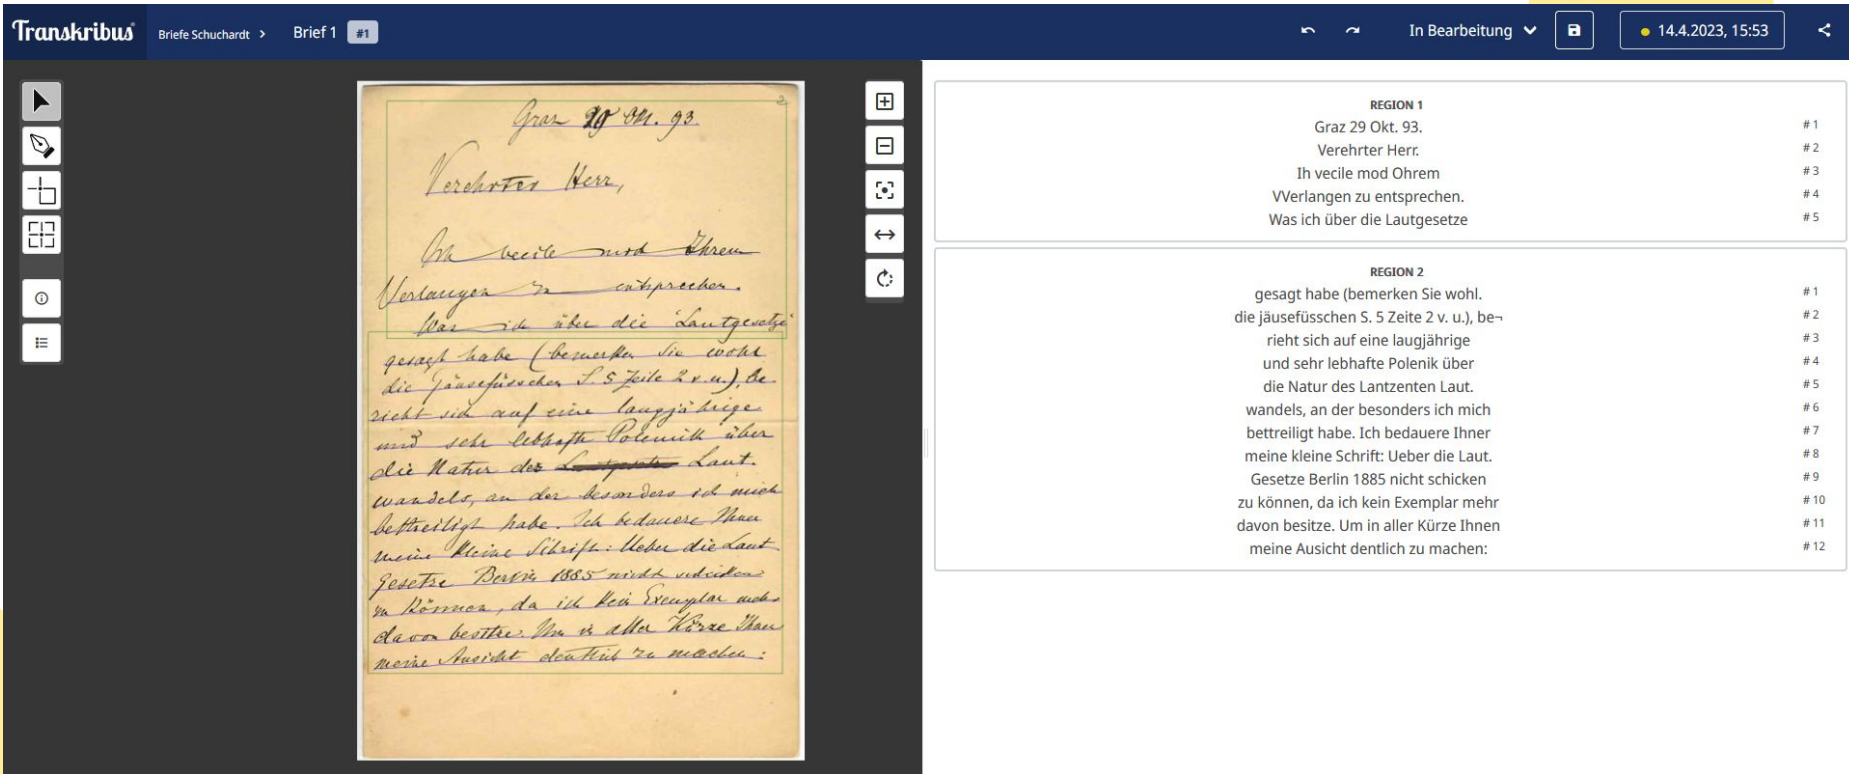 Transkribus
Briefe Schuchardt > Brief 1 #1
In Bearbeitung
14.4.2023, 15:53
2
Graz 29 Okt. 93.
Verehrter Herr,
Ich beeile mich Ihrem
Verlangen zu entsprechen.
Was ich über die 'Lautgesetze'
gesagt habe (bemerken Sie wohl
die Gänsefüsschen S. 5 Zeile 2 v. u.), be-
zieht sich auf eine langjährige
und sehr lebhafte Polemik über
die Natur des Laut-
wandels, an der besonders ich mich
betheiligt habe. Ich bedauere Ihnen
meine kleine Schrift: Ueber die Laut
gesetze Berlin 1885 nicht schicken
zu können, da ich kein Exemplar mehr
davon besitze. Um in aller Kürze Ihnen
meine Ansicht deutlich zu machen:
REGION 1
Graz 29 Okt. 93. #1
Verehrter Herr. #2
Ih vecile mod Ohrem #3
VVerlangen zu entsprechen. #4
Was ich über die Lautgesetze #5
REGION 2
gesagt habe (bemerken Sie wohl. #1
die jäusefüsschen S. 5 Zeite 2 v. u.), be¬ #2
rieht sich auf eine laugjährige #3
und sehr lebhafte Polenik über #4
die Natur des Lantzenten Laut. #5
wandels, an der besonders ich mich #6
bettreiligt habe. Ich bedauere Ihner #7
meine kleine Schrift: Ueber die Laut. #8
Gesetze Berlin 1885 nicht schicken #9
zu können, da ich kein Exemplar mehr #10
davon besitze. Um in aller Kürze Ihnen #11
meine Ausicht dentlich zu machen: #12